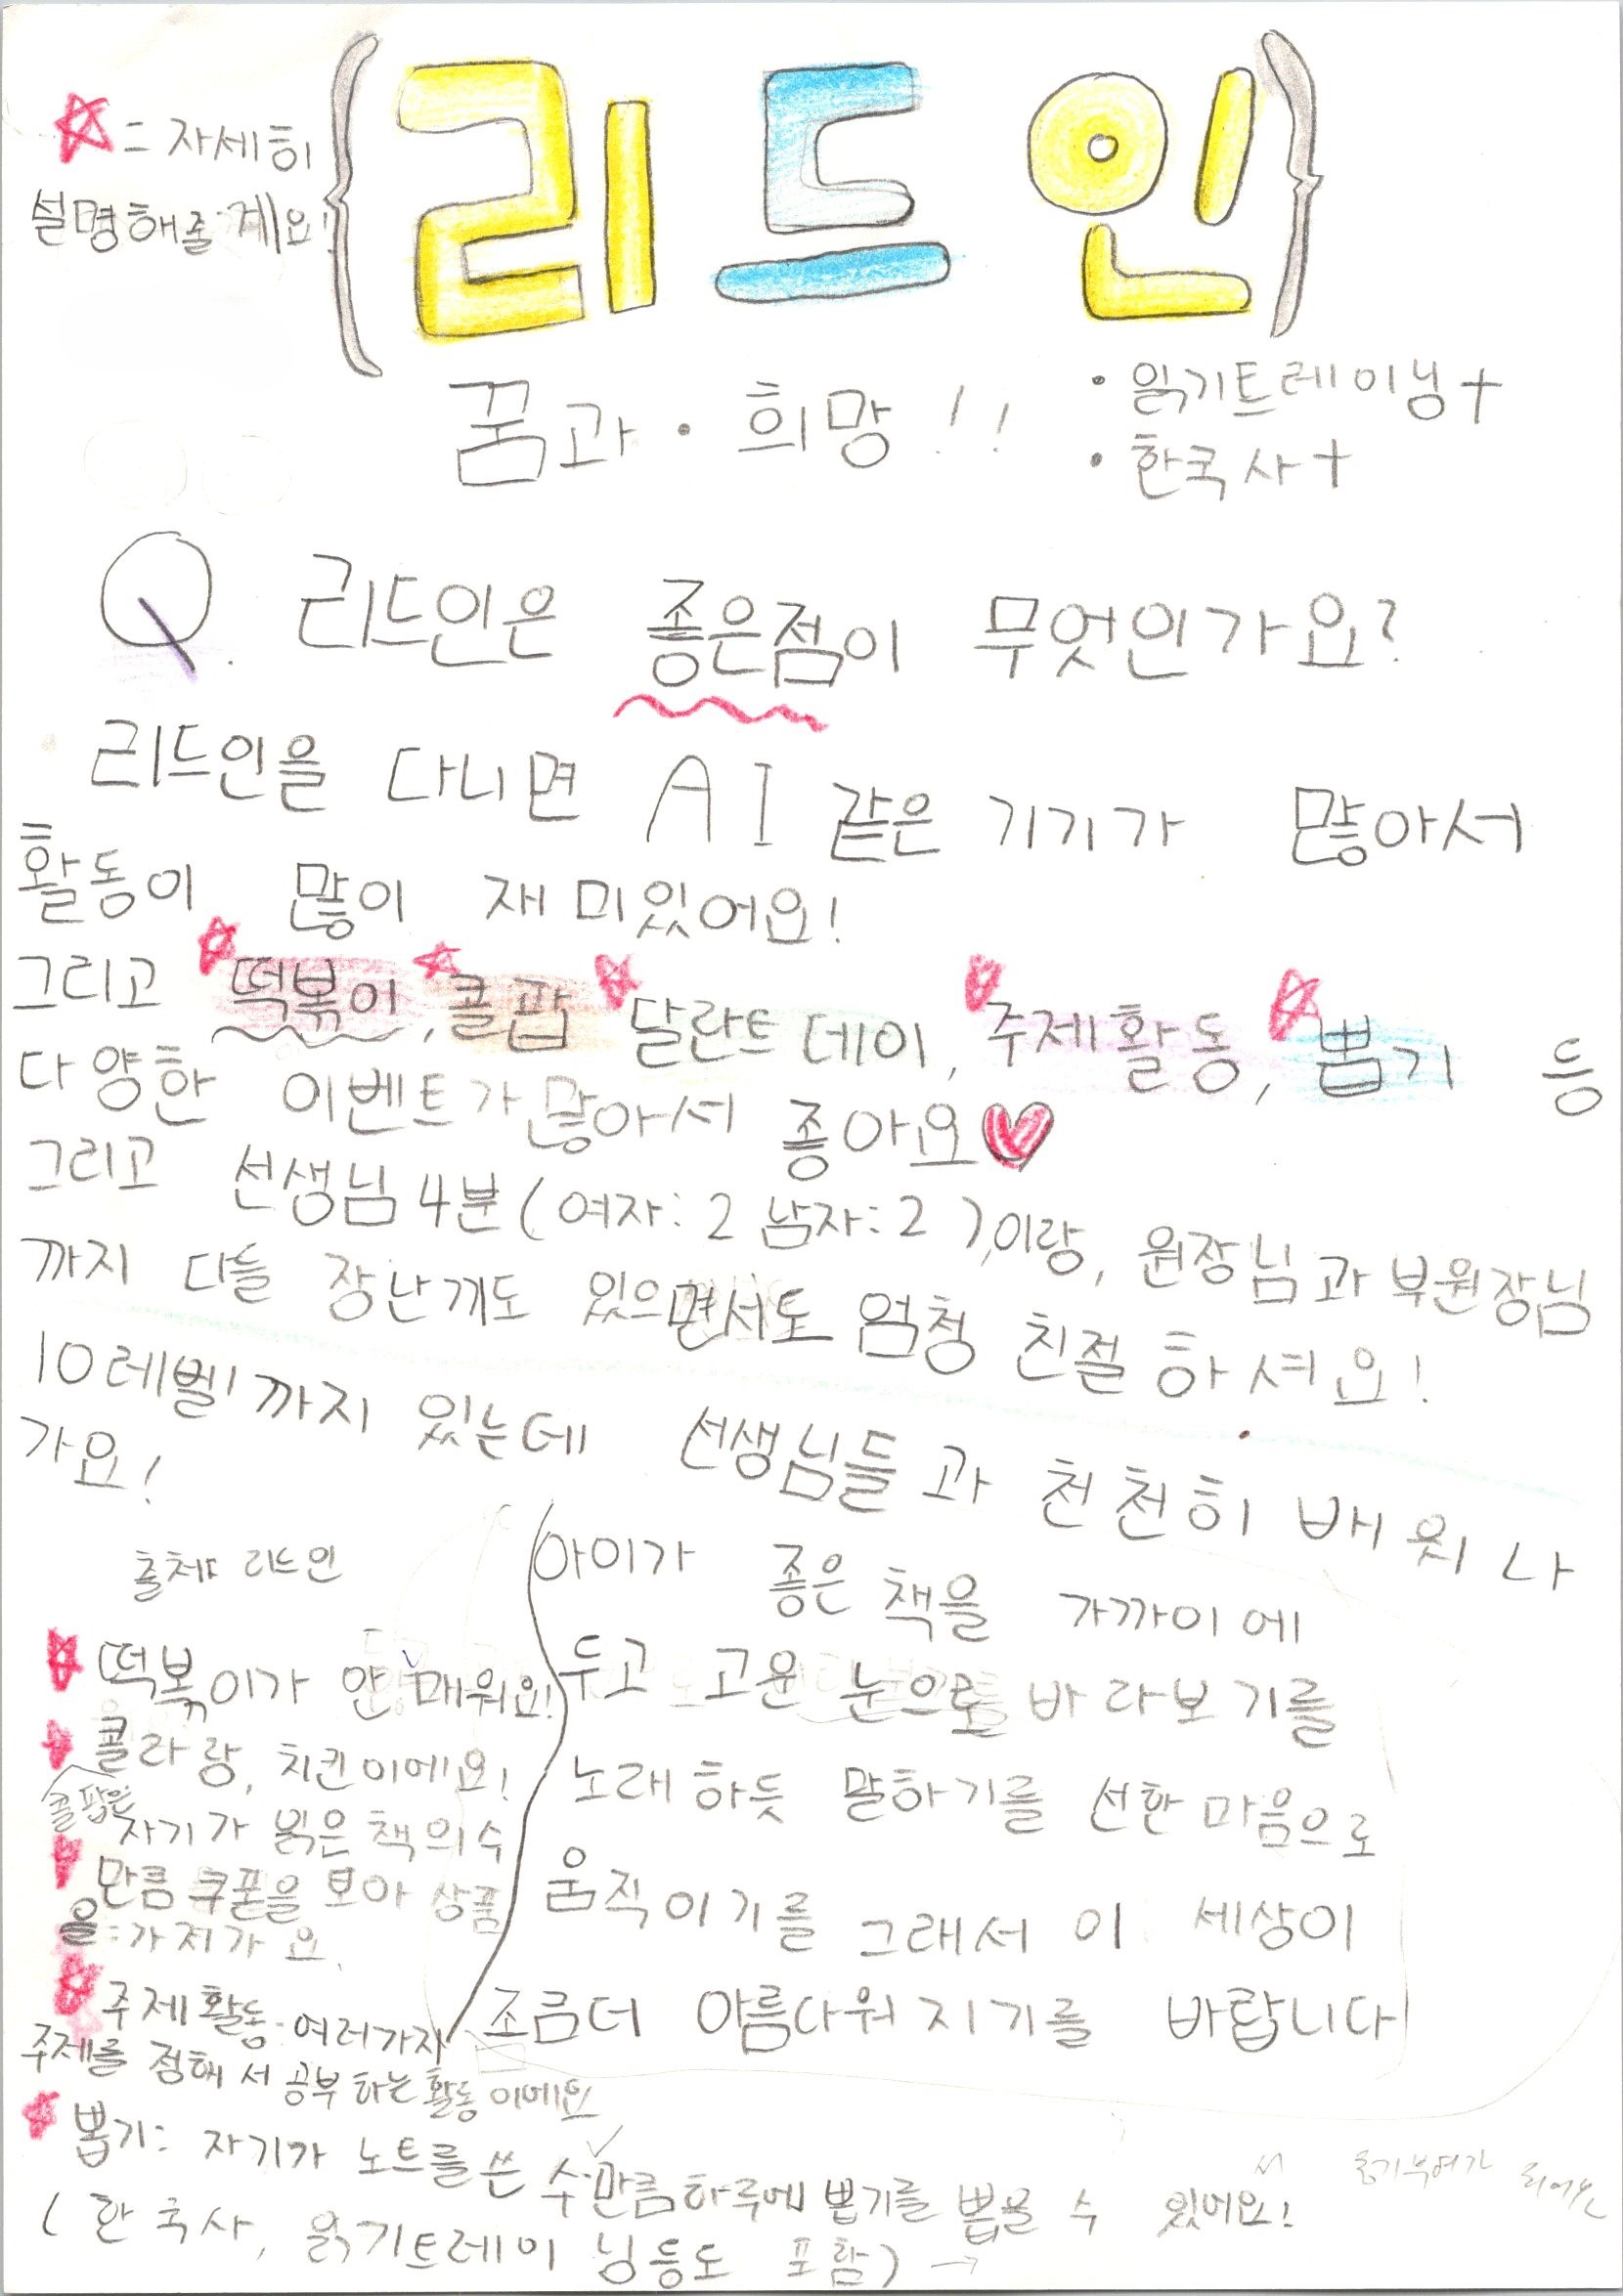 ☆= 자세히
설명해줄게요!
{리드인}
꿈과·희망!!
• 읽기트레이닝+
• 한국사+
Q. 리드인은 좋은점이 무엇인가요?
리드인을 다니면 AI 같은 기기가 많아서
활동이 많이 재미있어요!
그리고 ☆떡볶이, ☆콜팝 ☆달란트데이, ☆주제활동, ☆뽑기 등
다양한 이벤트가 많아서 좋아요♥
그리고 선생님 4분 (여자:2 남자:2), 이랑, 원장님과 부원장님
까지 다들 장난끼도 있으면서도 엄청 친절하셔요!
10레벨까지 있는데 선생님들과 천천히 배워나
가요!
출처: 리드인
☆ 떡볶이가 안 매워요!
☆ 콜라랑, 치킨이에요!
콜팝은
☆ 자기가 읽은 책의 수
만큼 쿠폰을 모아 상품
을 가져가요.
☆ 주제활동: 여러가지
주제를 정해서 공부하는 활동이에요
☆ 뽑기: 자기가 노트를 쓴 수만큼 하루에 뽑기를 뽑을 수 있어요!
(한국사, 읽기트레이닝등도 포함) →
아이가 좋은 책을 가까이에
두고 고운 눈으로 바라보기를
노래하듯 말하기를 선한 마음으로
움직이기를 그래서 이 세상이
조금더 아름다워지기를 바랍니다
서 동기부여가 되어요